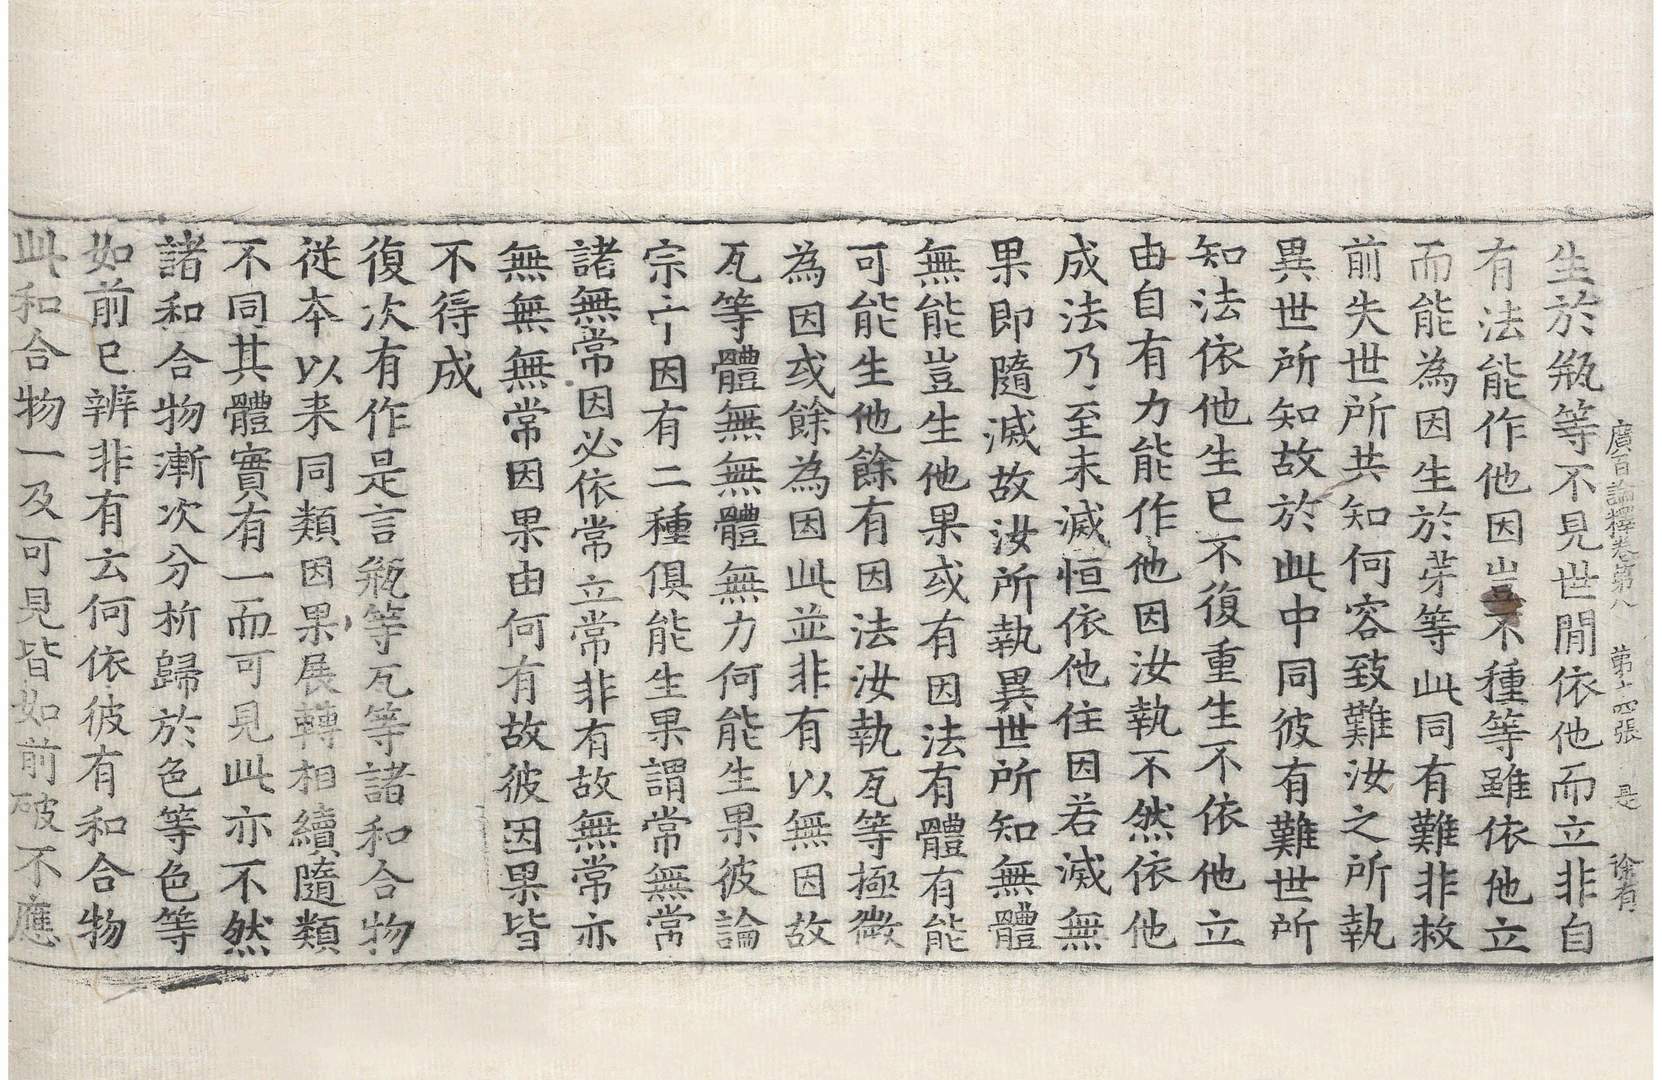 廣百論釋卷第八 第十四張 是 徐有
生於瓶等不見世間依他而立非自
有法能作他因豈不種等雖依他立
而能為因生於芽等此同有難非救
前失世所共知何容致難汝之所執
異世所知故於此中同彼有難世所
知法依他生已不復重生不依他立
由自有力能作他因汝執不然依他
成法乃至未滅恒依他住因若滅無
果即隨滅故汝所執異世所知無體
無能豈生他果或有因法有體有能
可能生他餘有因法汝執瓦等極微
為因或餘為因此並非有以無因故
瓦等體無無體無力何能生果彼論
宗中因有二種俱能生果謂常無常
諸無常因必依常立常非有故無常亦
無無無常因果由何有故彼因果皆
不得成
復次有作是言瓶等瓦等諸和合物
從本以来同類因果展轉相續隨類
不同其體實有一而可見此亦不然
諸和合物漸次分析歸於色等色等
如前已辨非有云何依彼有和合物
此和合物一及可見皆如前破不應